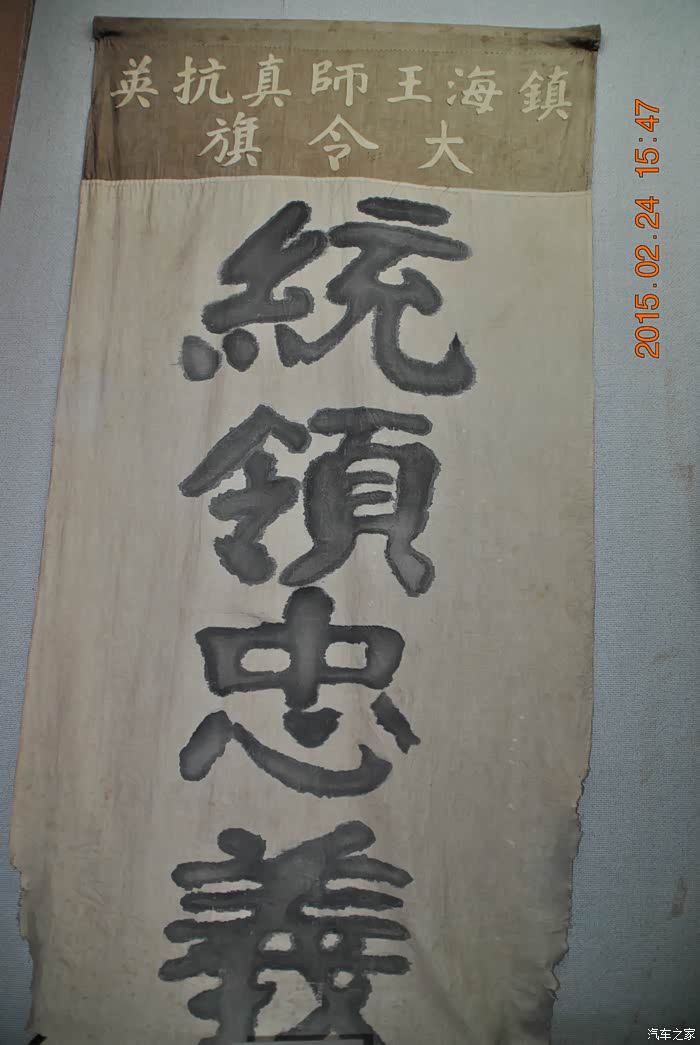 鎮海王師真抗英
大令旗
統領忠義
2015.02.24 15:47
汽车之家